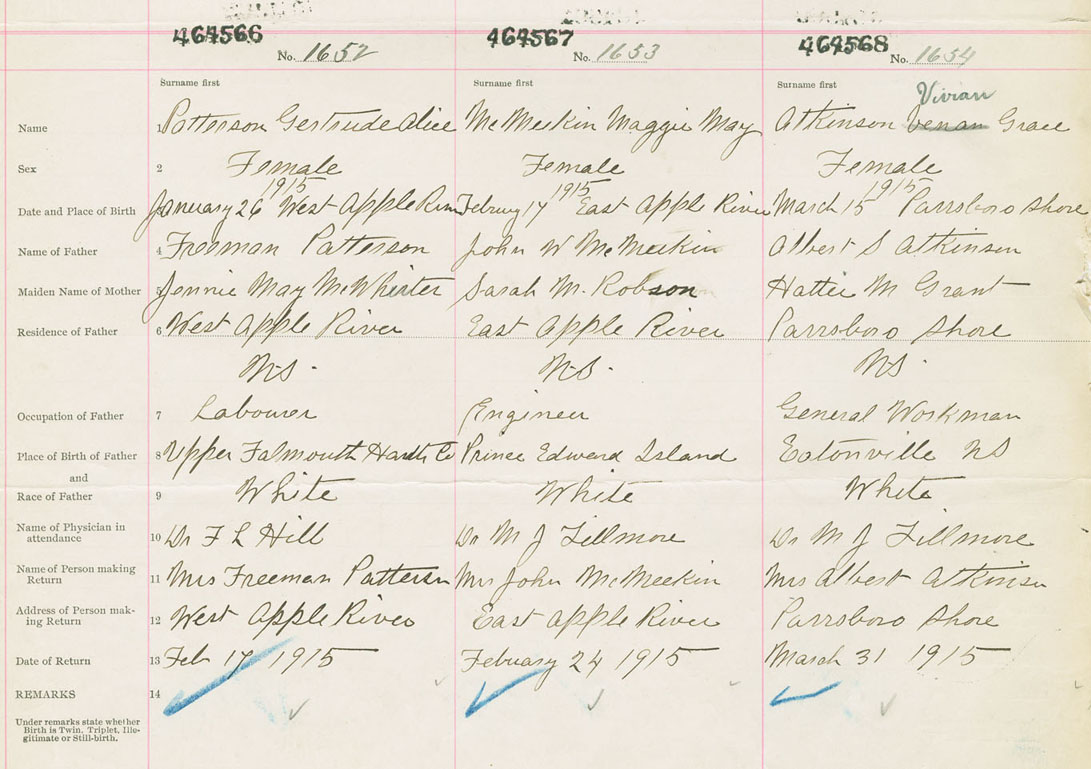 464566 464567 464568
No. 1652 No. 1653 No. 1654
Surname first Surname first Surname first
Vivian
Name 1 Patterson Gertrude Alice McMeekin Maggie May Atkinson Venan Grace
Sex 2 Female Female Female
1915 1915 1915
Date and Place of Birth January 26 West Apple River Februy 17 East Apple River March 15 Parrsboro Shore
Name of Father 4 Freeman Patterson John W McMeekin Albert S Atkinson
Maiden Name of Mother 5 Jennie May McWhirter Sarah M. Robson Hattie M Grant
Residence of Father 6 West Apple River East Apple River Parrsboro Shore
N.S. N.S. N.S.
Occupation of Father 7 Labourer Engineer General Workman
Place of Birth of Father 8 Upper Falmouth Hants Co Prince Edward Island Eatonville NS
and
Race of Father 9 White White White
Name of Physician in
attendance 10 Dr F L Hill Dr M J Fillmore Dr M J Fillmore
Name of Person making
Return 11 Mrs Freeman Patterson Mrs John McMeekin Mrs Albert Atkinson
Address of Person mak-
ing Return 12 West Apple River East Apple River Parrsboro Shore
Date of Return 13 Feb 17 1915 February 24 1915 March 31 1915
REMARKS 14
Under remarks state whether
Birth is Twin, Triplet, Ille-
gitimate or Still-birth.